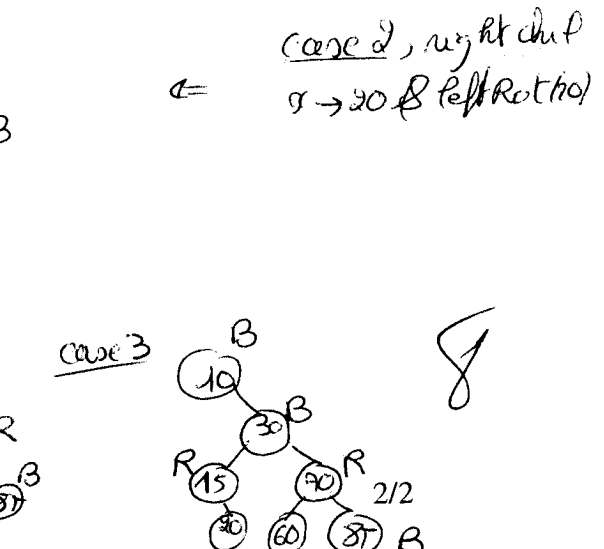 case 2, right chil
⇐
x → 20 & leftRot(20)
B
case 3
B
10
30 B
R
R 15
70 R
B
85
2/2
20
60
85 B
8